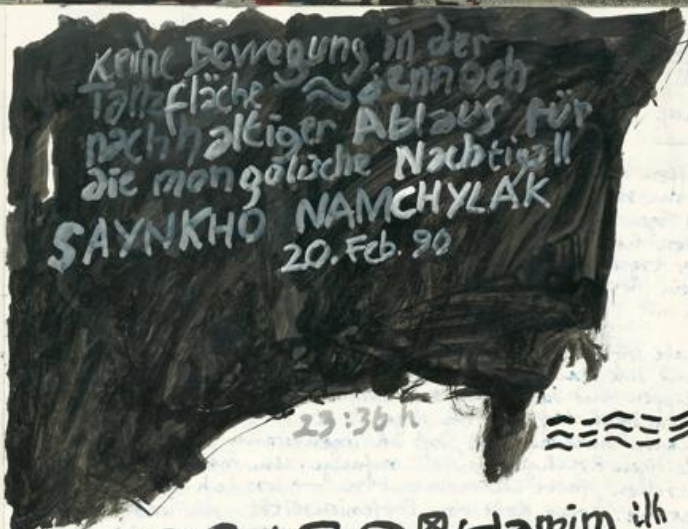 Keine Bewegung in der
Tanzfläche ≈ dennoch
nachhaltiger Ablaus für
die mongolische Nachtigall
SAYNKHO NAMCHYLAK
20. Feb. 90
23:36 h